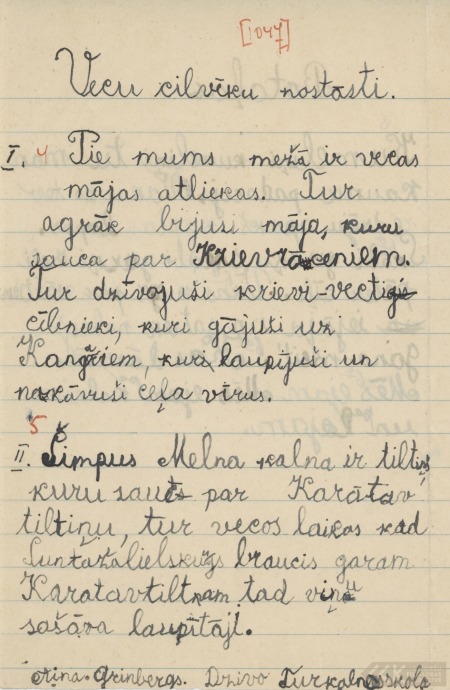 [1047]
Vecu cilvēku nostāsti.
I. 4 Pie mums mežā ir vecas
mājas atliekas. Tur
agrāk bijusi māja, kuru
sauca par Krievraceniem.
Tur dzīvojuši krievi-vectic
cībnieki, kuri gājuši uz
Kangariem, kuri laupījuši un
nokāvuši ceļa vīrus.
5
II. Šimpus Melna kalna ir tiltiņš
kuru sauc par Karātav
tiltiņu, tur vecos laikos kad
Suntažo lielskungs braucis garam
Karatavtiltņam tad viņu
sašāva laupītāji.
Grinbergs. Dzīvo Turkalnesskola